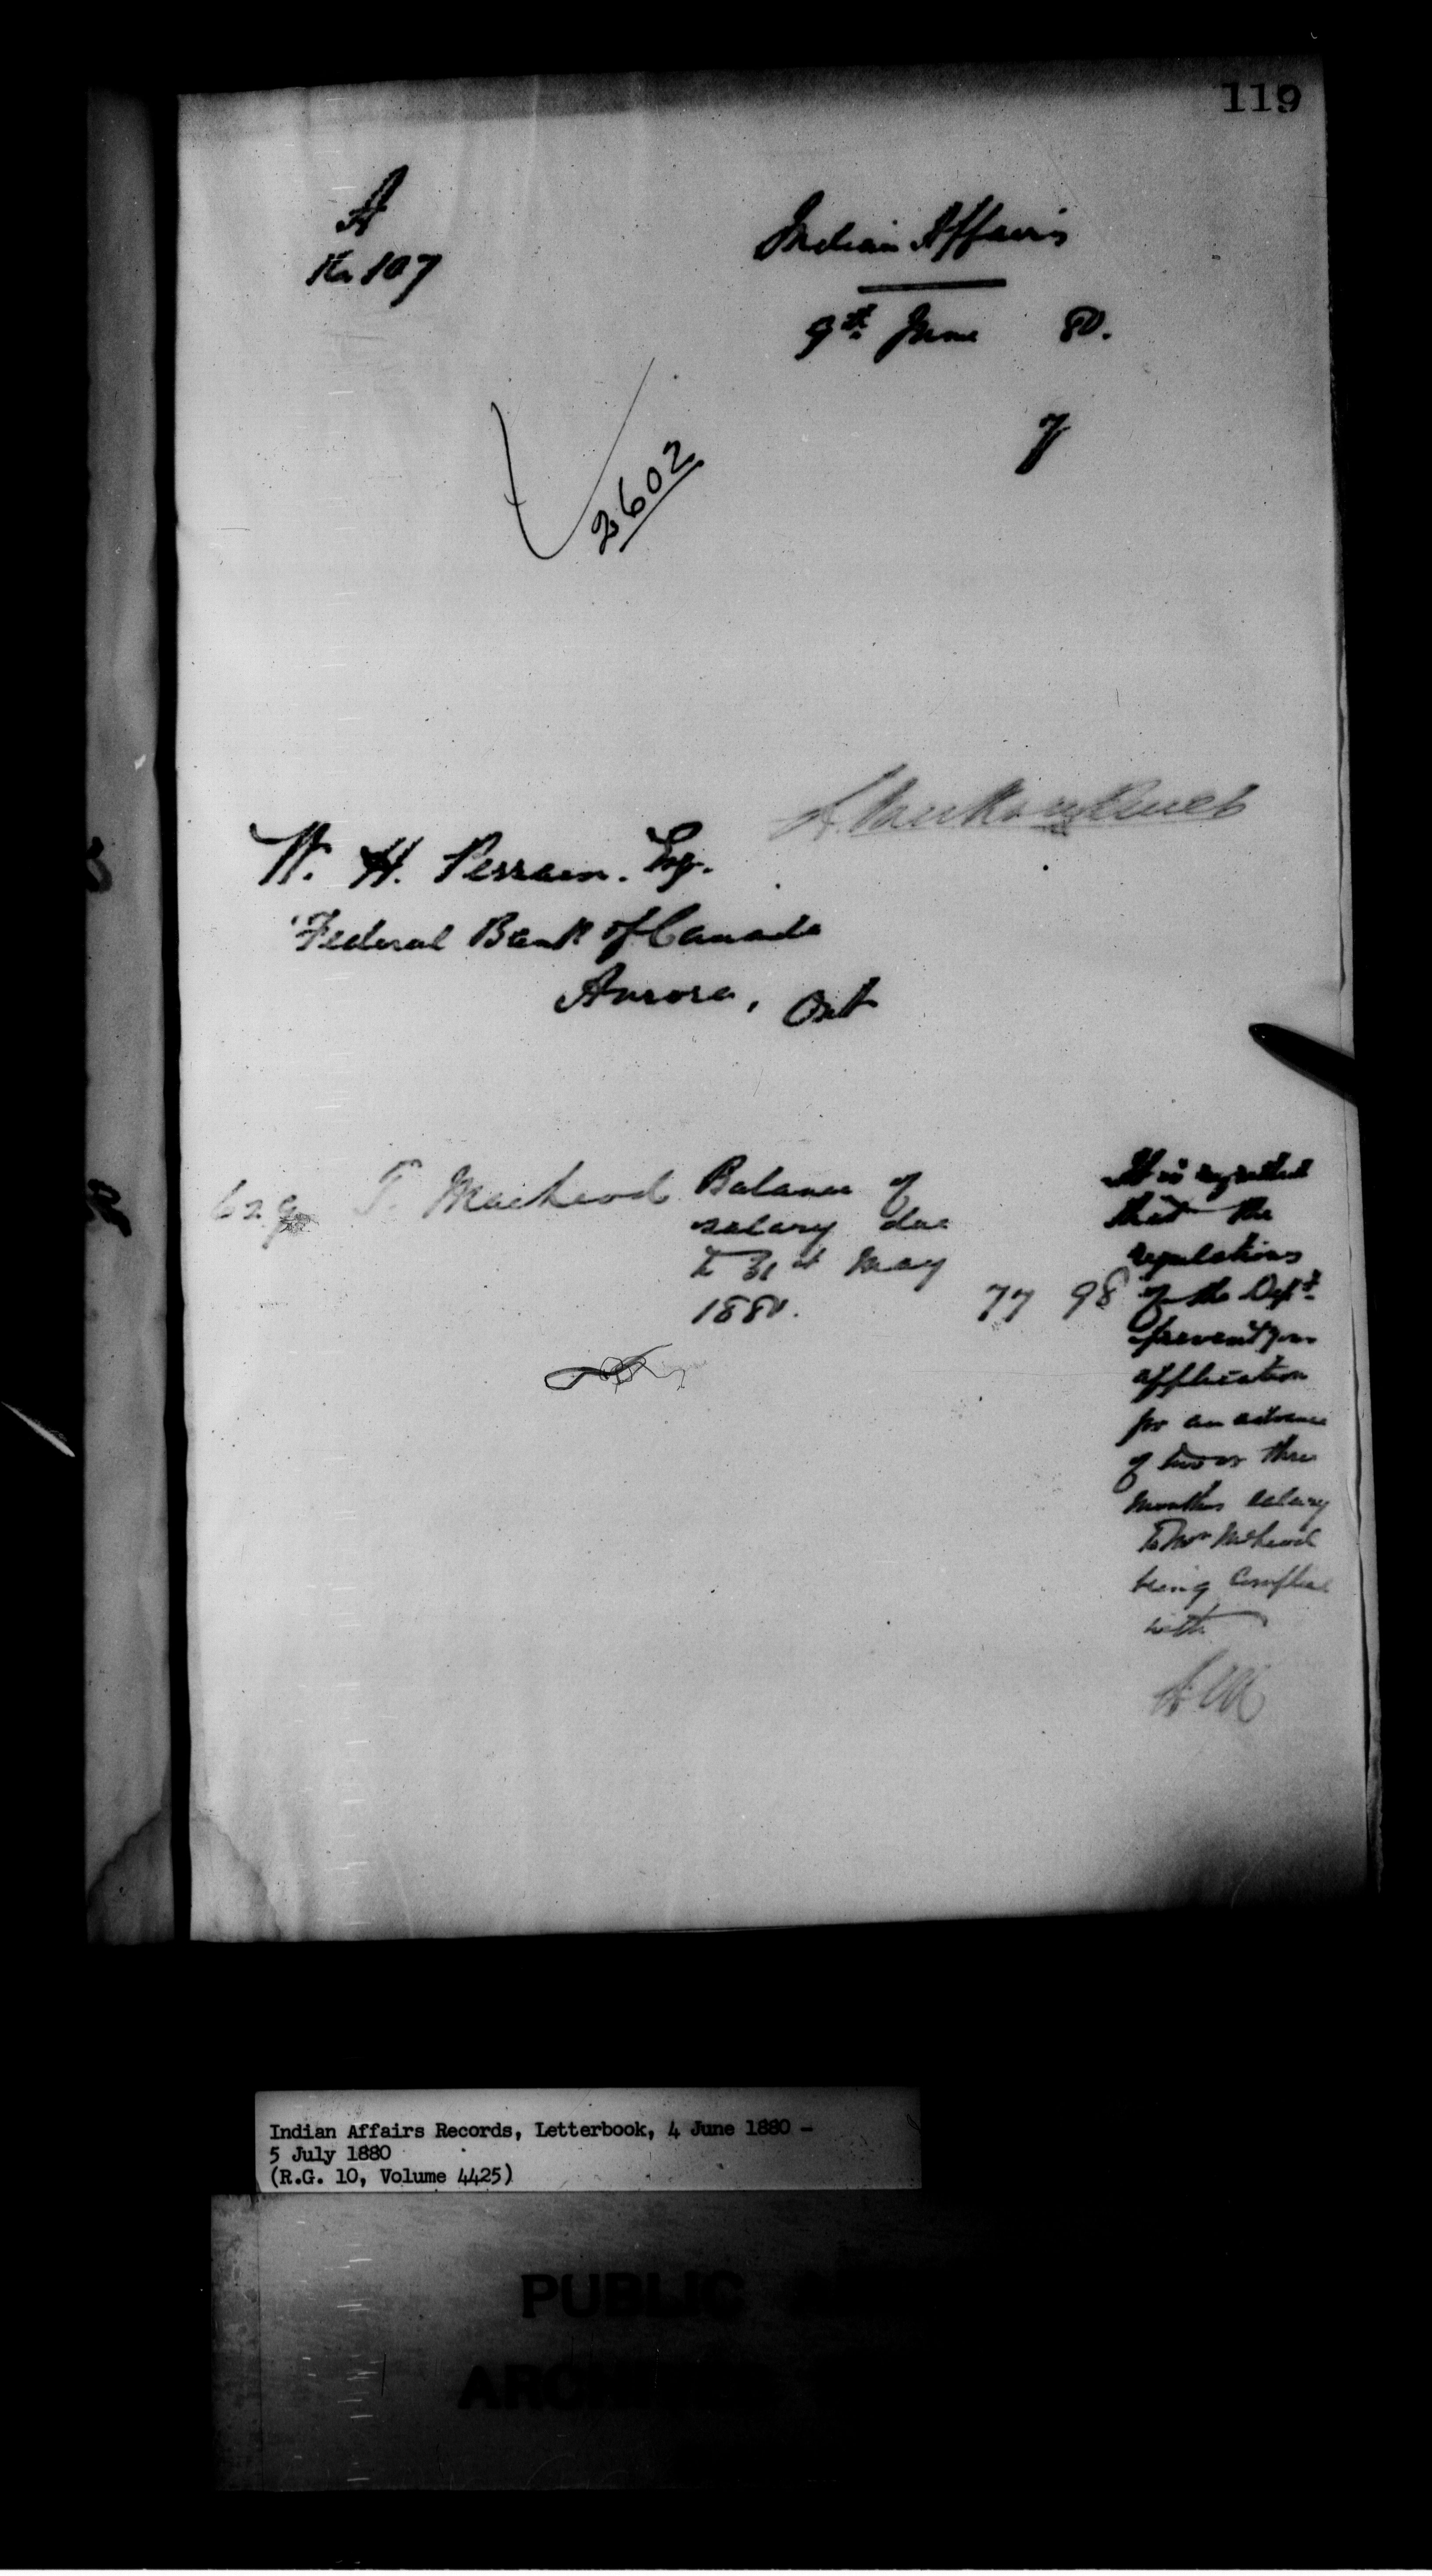 119
A
No 107
Indian Affairs
9th June 80.
7
2602
W. H. Perram. Esq.
Federal Bank of Canada
Aurora, Ont
629 T. Macleod Balance of
salary due
to 31st May
1880. 77 98
It is regretted
that the
regulations
of the Dept.
prevent your
application
for an advance
of two or three
months salary
To Mr McLeod
being complied
with
Indian Affairs Records, Letterbook, 4 June 1880 -
5 July 1880
(R.G. 10, Volume 4425)
PUBLIC
ARCHIVES